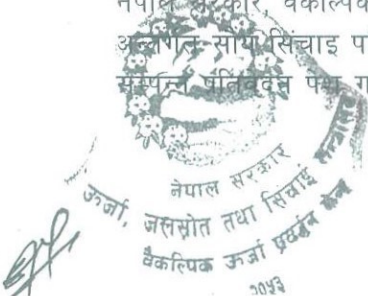 नेपाल सरकार, वैकल्पिक
अन्तर्गत सौर्य सिंचाइ प
सम्पन्न प्रतिवेदन पेश ग
नेपाल सरकार
ऊर्जा, जलस्रोत तथा सिंचाई मन्त्रालय
वैकल्पिक ऊर्जा प्रवर्द्धन केन्द्र
२०५३